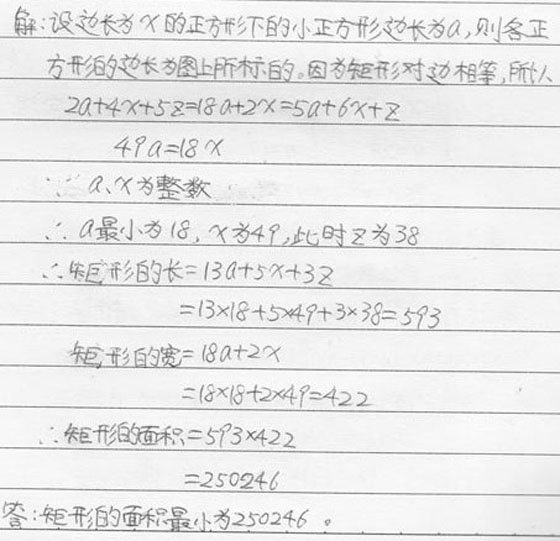 解:设边长为x的正方形下的小正方形边长为a,则各正
方形的边长为图上所标的。因为矩形对边相等,所以
2a+4x+5z=18a+2x=5a+6x+z
49a=18x
∵ a、x为整数
∴ a最小为18, x为49,此时z为38
∴矩形的长=13a+5x+3z
=13×18+5×49+3×38=593
矩形的宽=18a+2x
=18×18+2×49=422
∴矩形的面积=593×422
=250246
答:矩形的面积最小为250246。